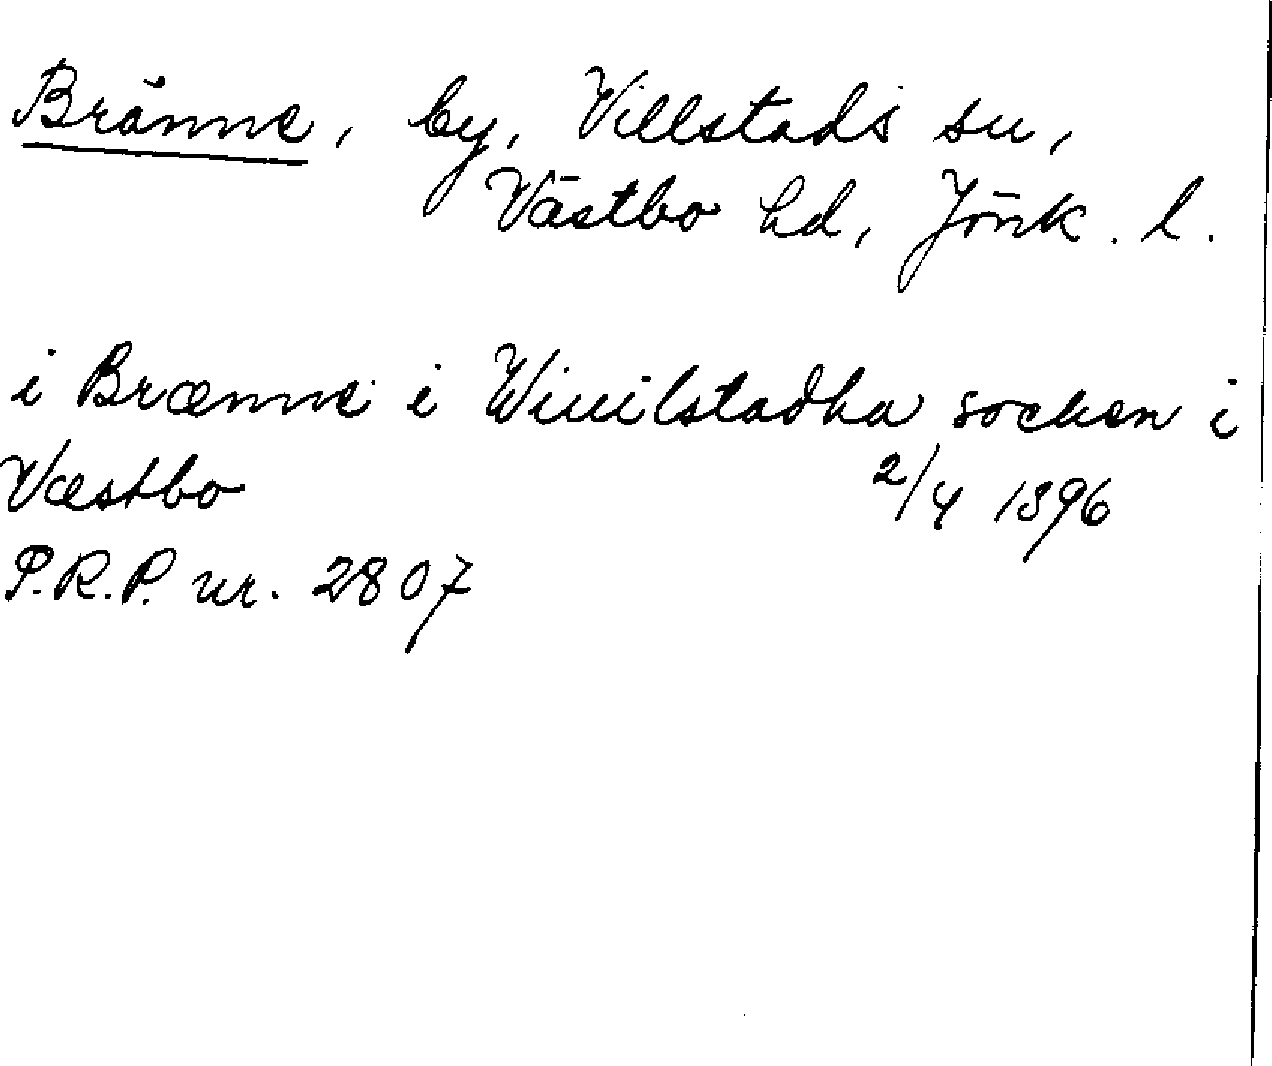 Bränne, by, Villstads sn,
Västbo hd, Jönk. l.
i Brænne i Winilstadha socken i
Væstbo 2/4 1396
P.R.P. nr. 2807